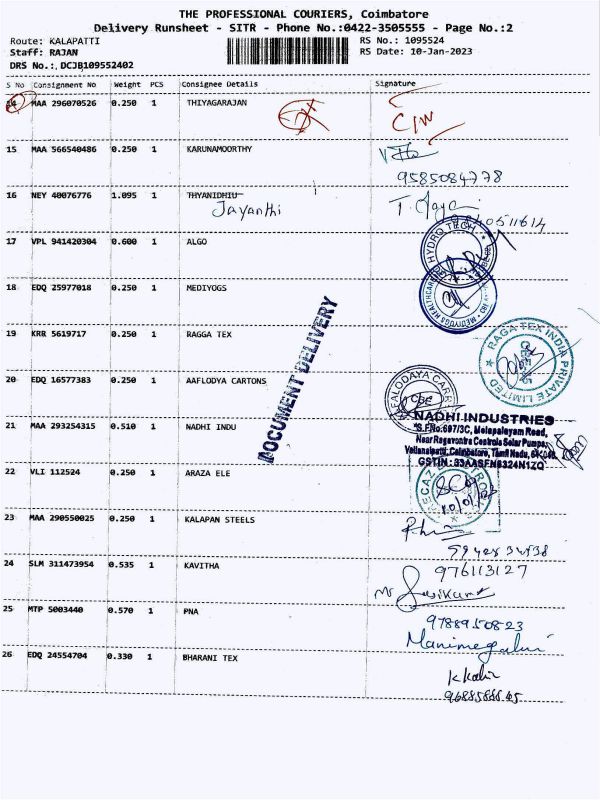 THE PROFESSIONAL COURIERS, Coimbatore
Delivery Runsheet - SITR - Phone No.:0422-3505555 - Page No.:2
Route: KALAPATTI
RS No.: 1095524
Staff: RAJAN
RS Date: 10-Jan-2023
DRS No.:.DCJB109552402
S No Consignment No Weight PCS Consignee Details Signature
14 MAA 296070526 0.250 1 THIYAGARAJAN
15 MAA 566540486 0.250 1 KARUNAMOORTHY
9585084778
16 NEY 40076776 1.095 1 THYANIDHIU
Jayanthi
17 VPL 941420304 0.600 1 ALGO
HYDRO TECH
18 EDQ 25977018 0.250 1 MEDIYOGS
MEDIYOGS HEALTHCARE
19 KRR 5619717 0.250 1 RAGGA TEX
RAGA TEX INDIA PRIVATE LIMITED
DOCUMENT DELIVERY
20 EDQ 16577383 0.250 1 AAFLODYA CARTONS
CBE
21 MAA 293254315 0.510 1 NADHI INDU
NADHI INDUSTRIES
S.F.No:697/3C, Melapalayam Road,
Near Ragavontra Controls Solar Pumps,
Coimbatore, Tamil Nadu,
GSTIN: 33AASFN6324N1ZQ
22 VLI 112524 0.250 1 ARAZA ELE
10/01/23
23 MAA 290550025 0.250 1 KALAPAN STEELS
24 SLM 311473954 0.535 1 KAVITHA
976113127
25 MTP 5003440 0.570 1 PNA
9788950823
Manimegalai
26 EDQ 24554704 0.330 1 BHARANI TEX